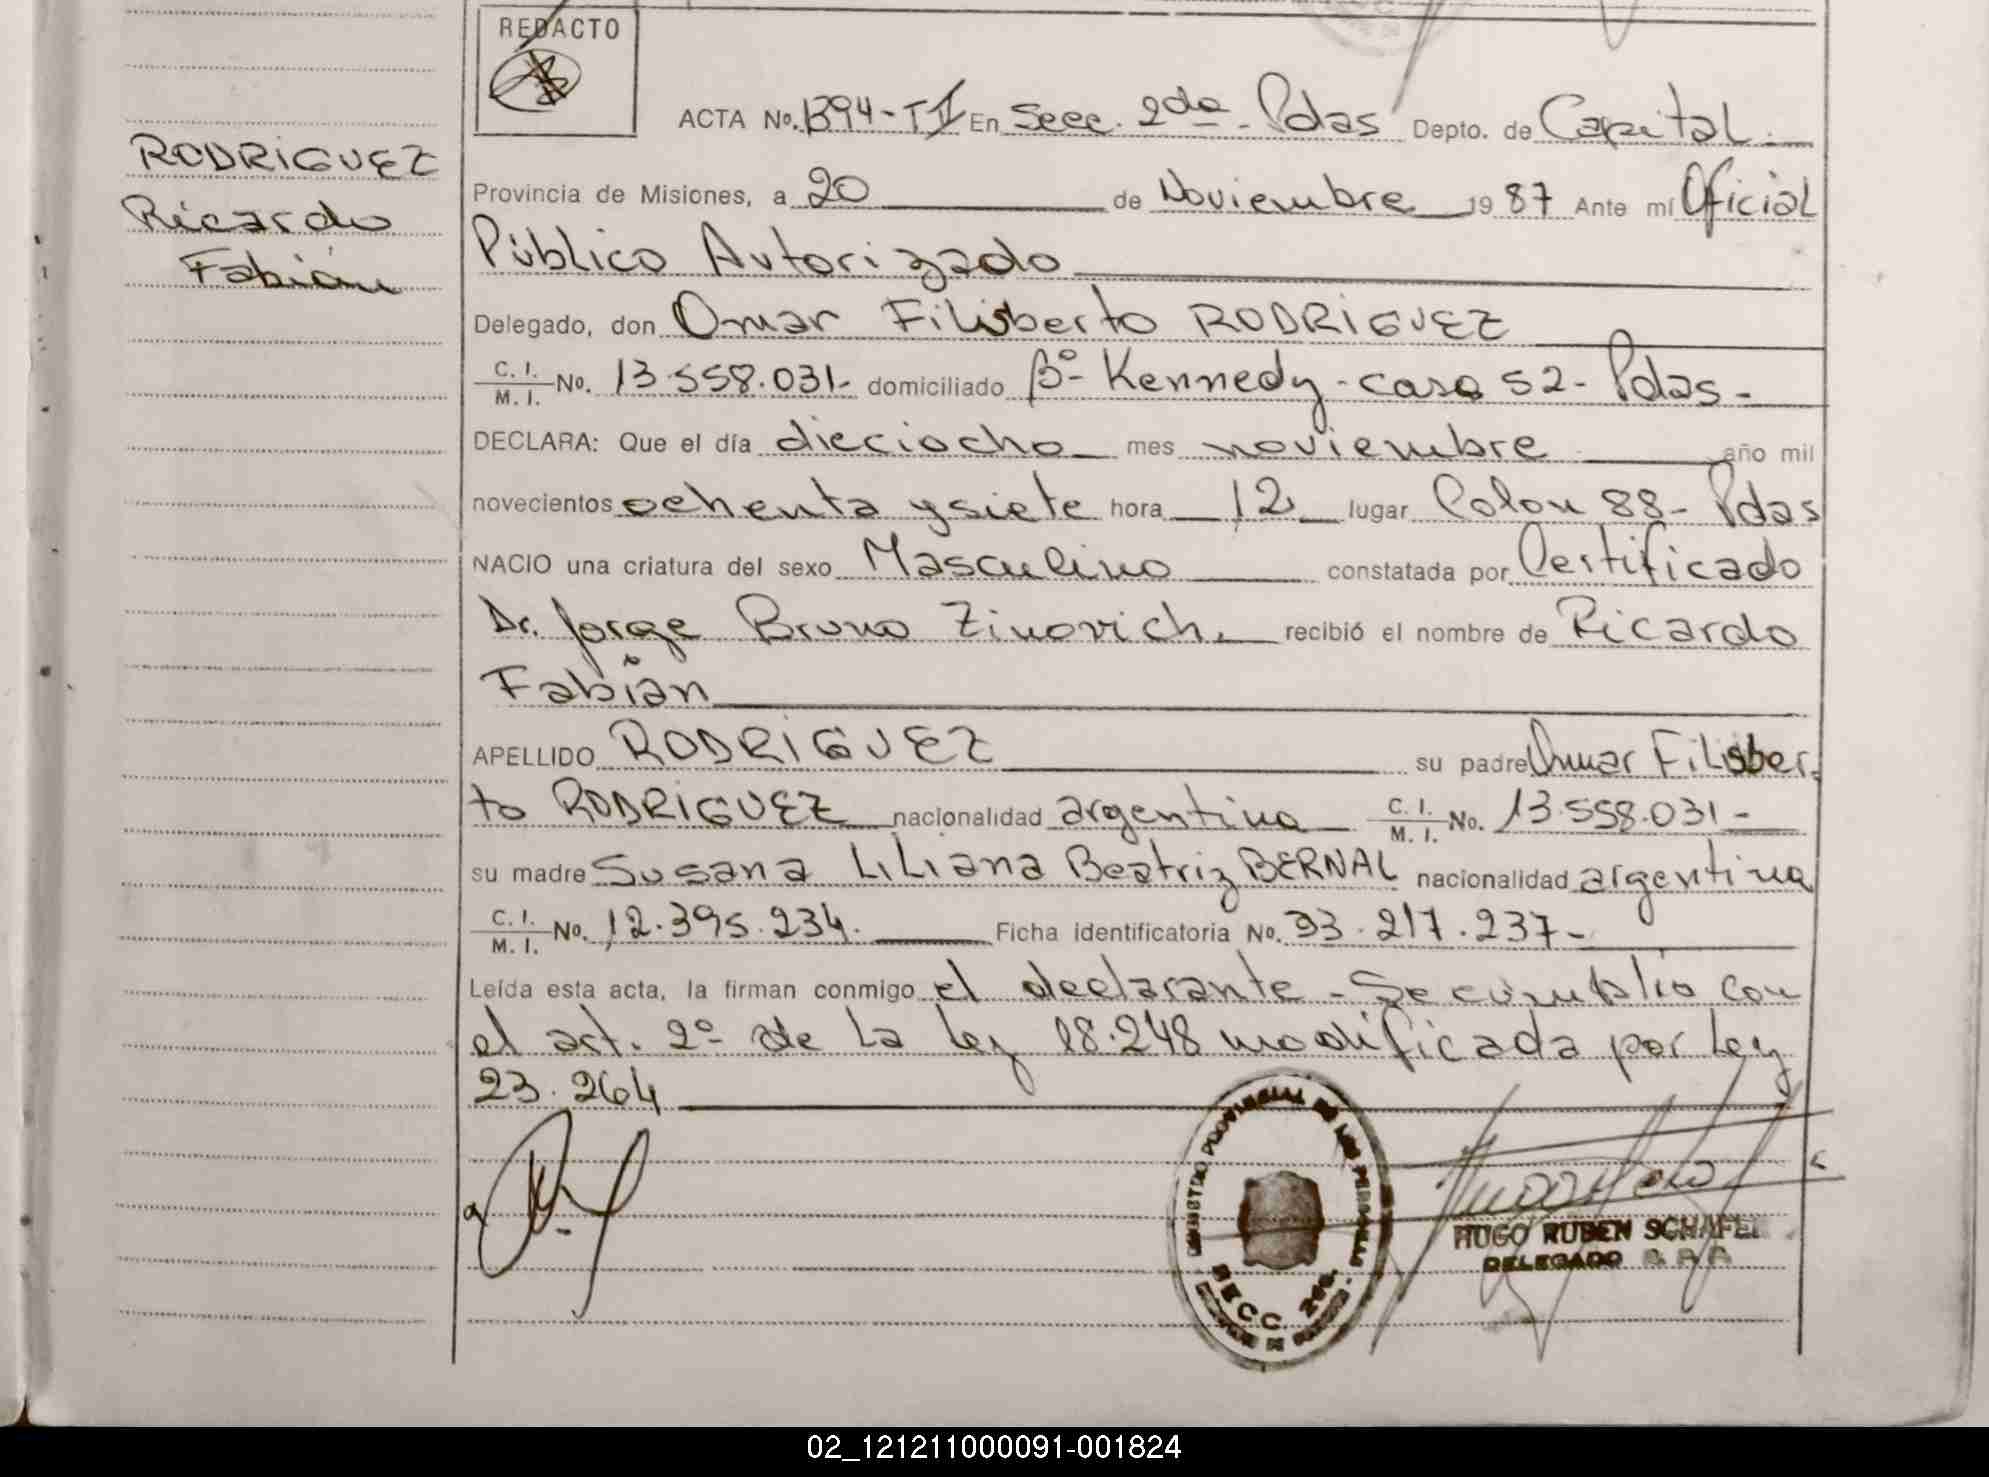 REDACTO
ACTA No. 1394-T II En Secc. 2da - Pdas Depto. de Capital
RODRIGUEZ
Ricardo
Fabián
Provincia de Misiones, a 20 de Noviembre 1987 Ante mí Oficial
Público Autorizado
Delegado, don Omar Filisberto RODRIGUEZ
C. I. / M. I. No. 13.558.031- domiciliado Bº- Kennedy - casa 52 - Pdas -
DECLARA: Que el día dieciocho mes noviembre año mil
novecientos ochenta y siete hora 12 lugar Colon 88 - Pdas
NACIO una criatura del sexo Masculino constatada por Certificado
Dr. Jorge Bruno Zinovich. recibió el nombre de Ricardo
Fabián
APELLIDO RODRIGUEZ su padre Omar Filisber
to RODRIGUEZ nacionalidad argentina C. I. / M. I. No. 13.558.031-
su madre Susana Liliana Beatriz BERNAL nacionalidad argentina
C. I. / M. I. No. 12.395.234. Ficha identificatoria No. 33.217.237-
Leída esta acta, la firman conmigo el declarante - Se cumplio con
el art. 2º de la Ley 18.248 modificada por Ley
23.264
REGISTRO PROVINCIAL DE LAS PERSONAS
SECC. 2da.
HUGO RUBEN SCHAFE
DELEGADO
02_121211000091-001824